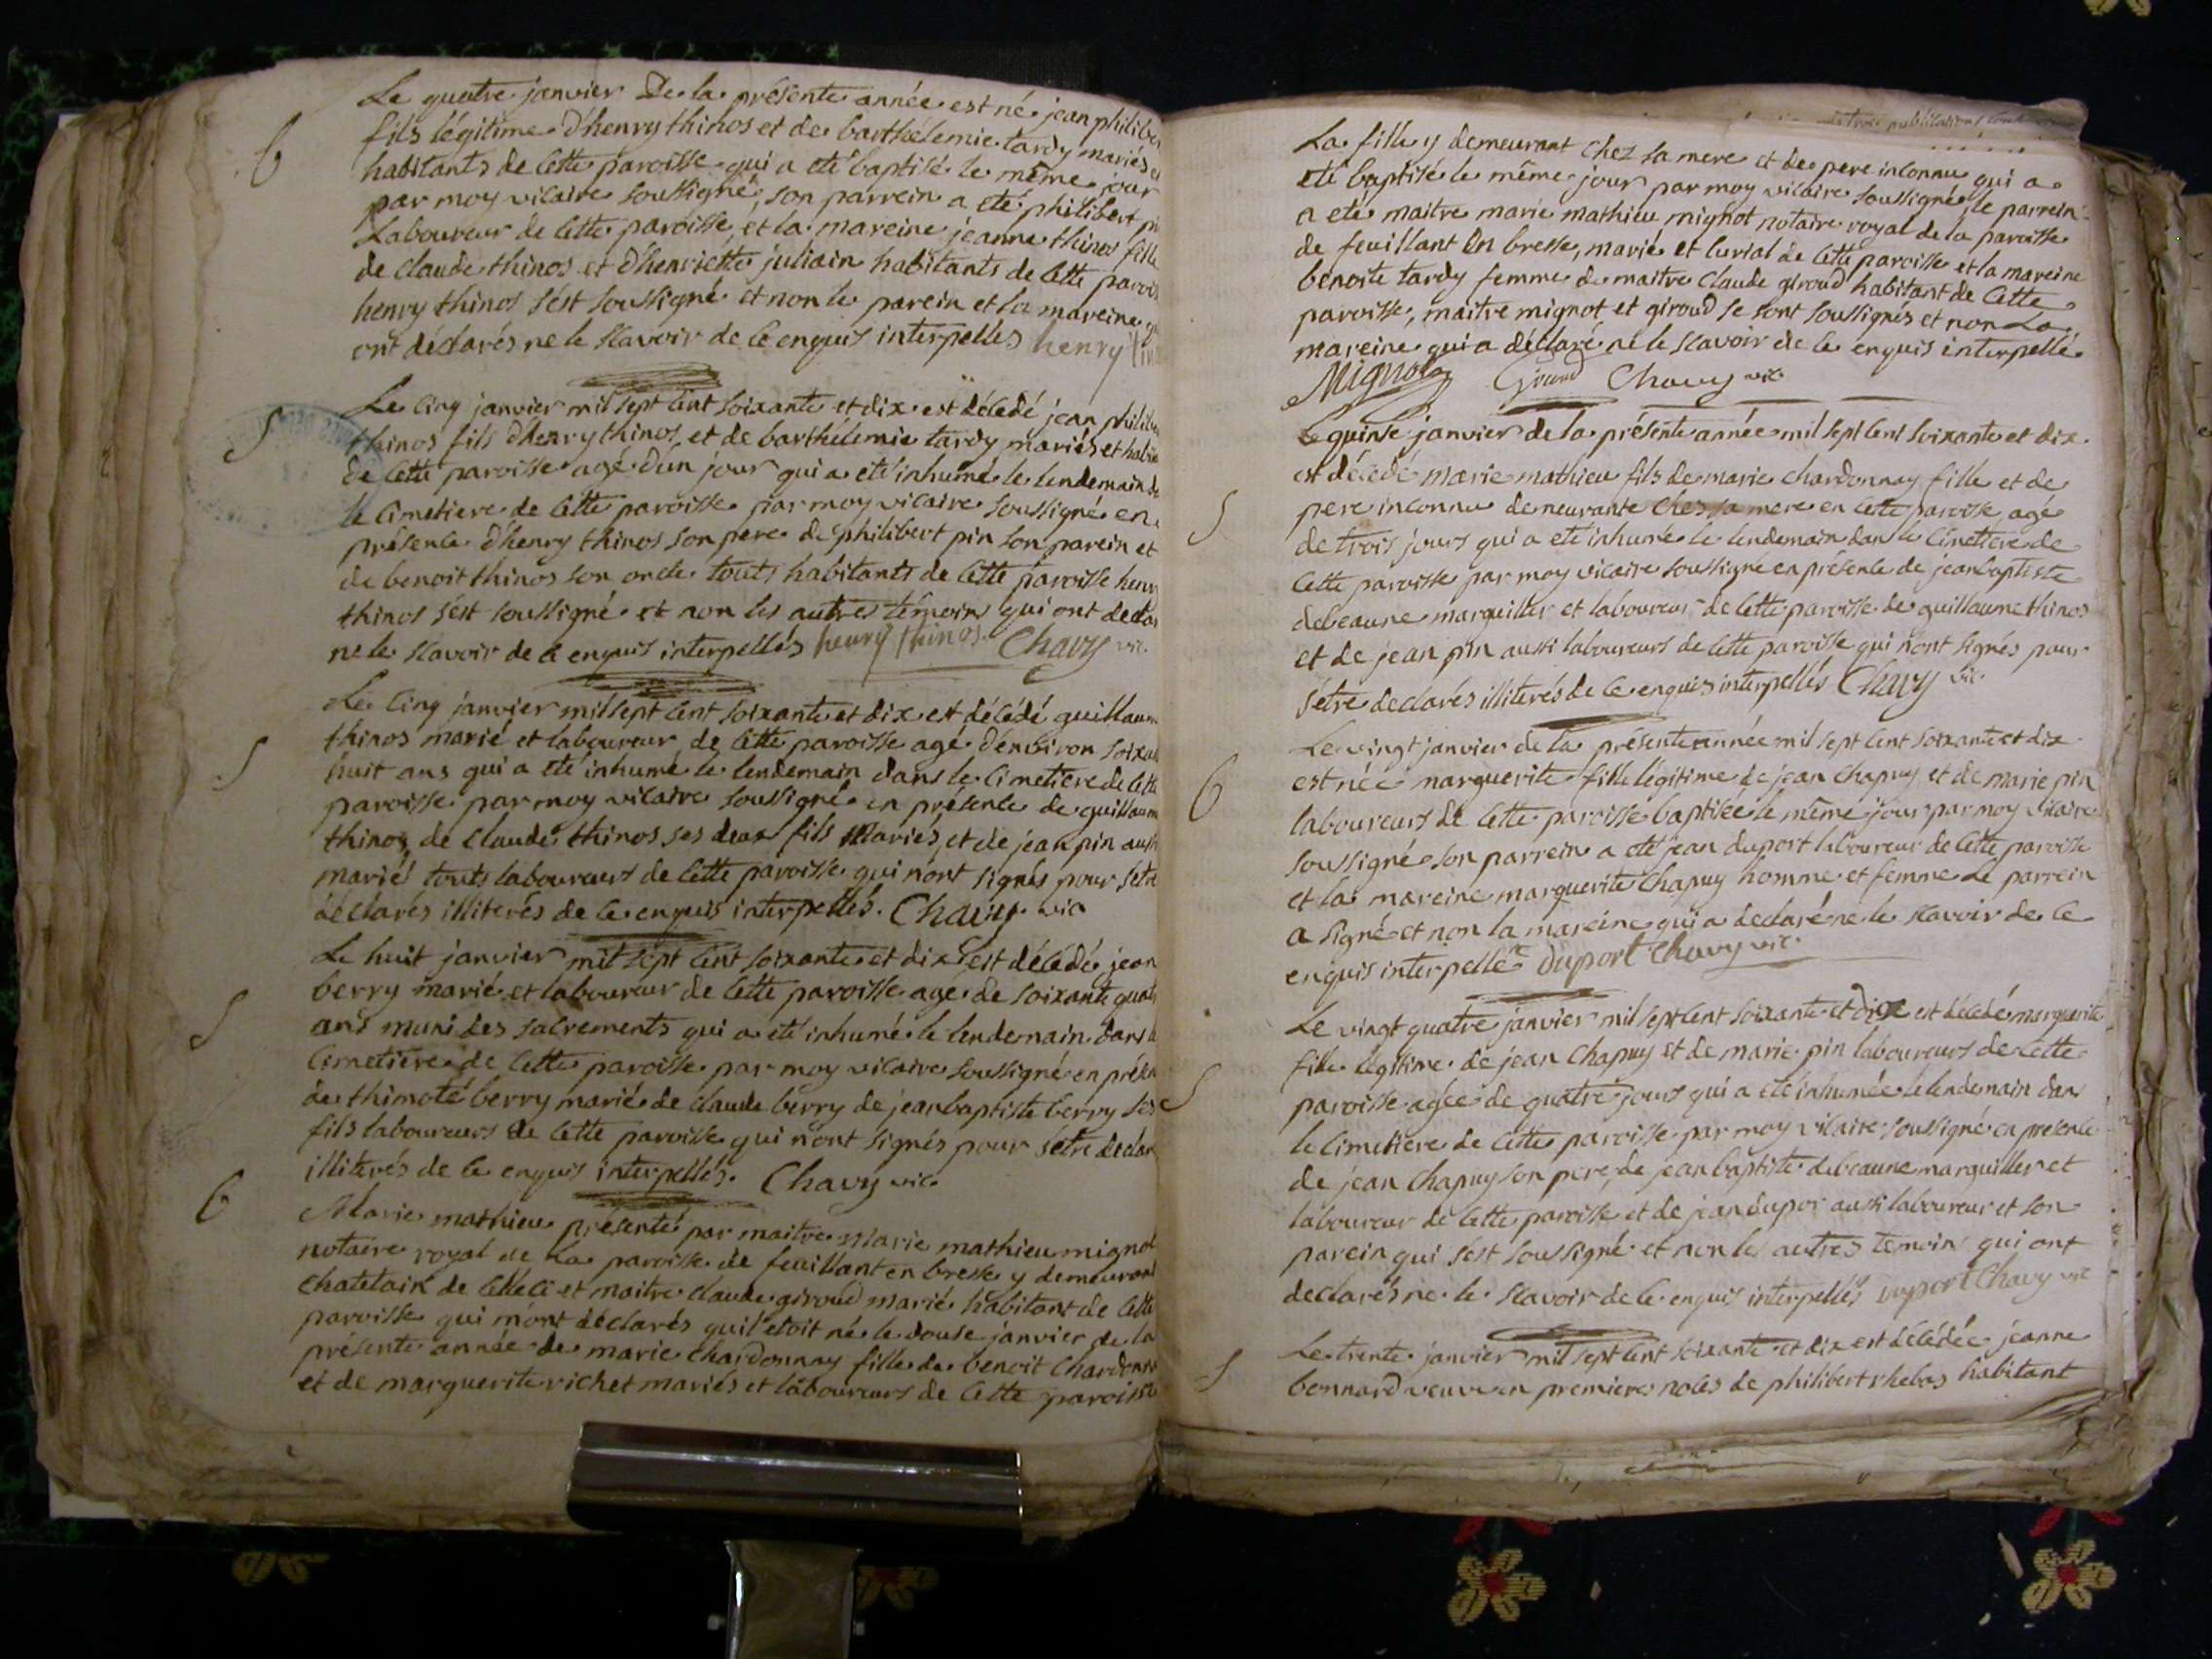 Le quatre janvier De la présente année est né jean philiber
b
fils légitime d'henry thinos et de barthélemie tardy mariés et
habitants de cette paroisse qui a eté baptisé le même jour
par moy vicaire soussigné, son parrein a eté philibert pi
Laboureur de cette paroisse, et la mareine jeanne thinos fille
de claude thinos et d'henriette juliain habitants de cette parois
henry thinos s'est soussigné et non le parein et la mareine qu
ont déclarés ne le scavoir de ce enquis interpelles henry thin
Le cinq janvier mil sept cent soixante et dix est décédé jean philiber
S
thinos fils d'henry thinos, et de barthélemie tardy mariés et habit
de cette paroisse agé d'un jour qui a eté inhumé le lendemain da
le cimetiere de cette paroisse par moy vicaire soussigné en
présence d'henry thinos son pere de philibert pin son parein et
de benoit thinos son oncle touts habitants de cette paroisse henry
thinos s'est soussigné et non les autres témoins qui ont declar
ne le scavoir de ce enquis interpellés henry thinos. Chavy vic.
Le cinq janvier mil sept cent soixante et dix est décédé guillaum
S
thinos marié et laboureur de cette paroisse agé d'environ soixan
huit ans qui a eté inhumé le lendemain dans le cimetiere de cette
paroisse par moy vicaire soussigné en présence de guillaum
thinos, de claude thinos ses deux fils mariés, et de jean pin aussi
marié touts laboureurs de cette paroisse qui n'ont signés pour setre
déclarés illiterés de ce enquis interpellés. Chavy vic
Le huit janvier mil sept cent soixante et dix est décédé jean
S
berry marié et laboureur de cette paroisse agé de soixante quatr
ans muni des sacrements qui a eté inhumé le lendemain dans le
cimetiere de cette paroisse par moy vicaire soussigné en présen
de thimoté berry marié de claude berry de jean baptiste berry ses
fils laboureurs de cette paroisse qui n'ont signés pour s'etre declar
illiterés de ce enquis interpellés. Chavy vic.
b
Marie mathieu présenté par maitre marie mathieu mignot
notaire royal de la paroisse de feuillant en bresse y demeurant
chatelain de celle ci et maitre claude giroud marié habitant de cette
paroisse qui m'ont déclarés qu'il etoit né le douse janvier de la
présente année de marie chardonnay fille de benoit chardonn
et de marguerite richet mariés et laboureurs de cette paroisse
trois publications
La fille y demeurant chez sa mere et de pere inconnu qui a
eté baptisé le même jour par moy vicaire soussigné, le parrein
a eté maitre marie mathieu mignot notaire royal de la paroisse
de feuillant En bresse, marié et curial de cette paroisse et la mareine
benoite tardy femme de maitre claude giroud habitant de cette
paroisse, maitre mignot et giroud se sont soussignés et non La
mareine qui a déclaré ne le scavoir de ce enquis interpellé.
Mignot Giroud Chavy vic
Le quinse janvier de la présente année mil sept cent soixante et dix
est décédé marie mathieu fils de marie chardonnay fille et de
S
pere inconnu demeurante chez sa mere en cette paroisse agé
de trois jours qui a eté inhumé le lendemain dan le cimetiere de
cette paroisse par moy vicaire soussigné en présence de jean baptiste
debeaune marguiller et laboureur de cette paroisse de guillaume thinos
et de jean pin aussi laboureurs de cette paroisse qui n'ont signés pour
s'etre declarés illiterés de ce enquis interpellés Chavy vic.
Le vingt janvier de la présente année mil sept cent soixante et dix
est née marguerite fille légitime de jean chapuy et de marie pin
b
laboureurs de cette paroisse baptisée le même jour par moy vicaire
soussigné son parrein a eté jean duport laboureur de cette paroisse
et la mareine marguerite chapuy homme et femme Le parrein
a signé et non la mareine qui a declaré ne le scavoir de ce
enquis interpellée Duport Chavy vic.
Le vingt quatre janvier mil sept cent soixante et dix est décédé marguerite
fille légitime de jean chapuy et de marie pin laboureurs de cette
S
paroisse agée de quatre jours qui a eté inhumée le lendemain dan
le cimetiere de cette paroisse par moy vicaire soussigné en presence
de jean chapuy son pere, de jean baptiste debeaune marguiller et
laboureur de cette paroisse et de jean dupor aussi laboureur et son
parein qui s'est soussigné et non les autres temoins qui ont
declarés ne le scavoir de ce enquis interpellés duport Chavy vic
Le trente janvier mil sept cent soixante et dix est décédée jeanne
S
bonnard veuve en premieres noces de philibert rhebas habitant